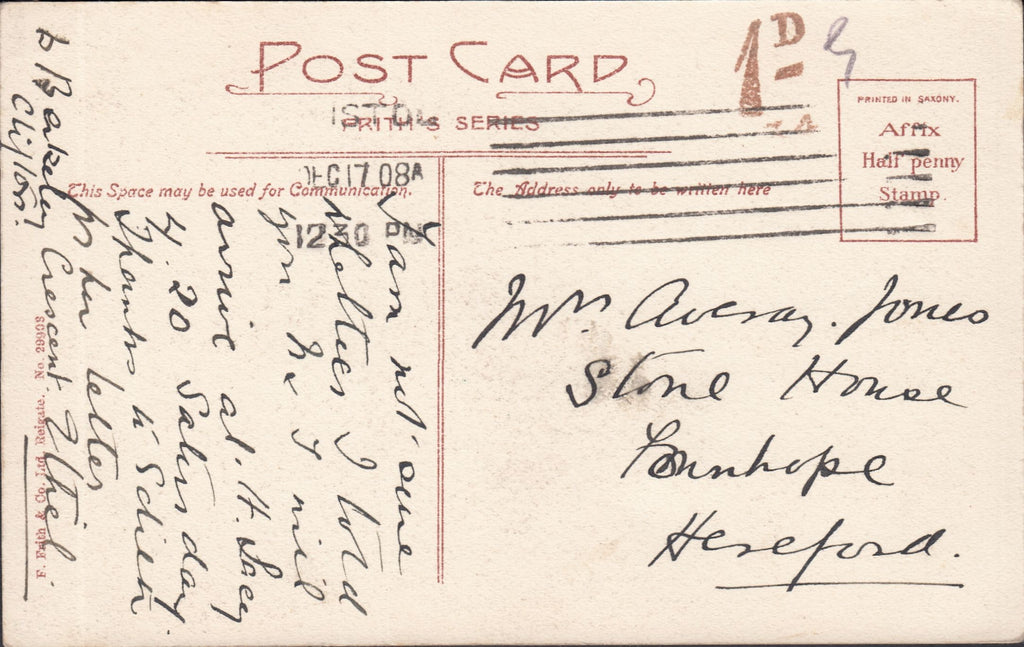 POST CARD
1D
PRINTED IN SAXONY.
Affix
Half penny
Stamp.
FRITH'S SERIES
ISTOL
DEC 17 08A
12 30 PM
This Space may be used for Communication.
The Address only to be written here
Mrs. Averay. Jones
Stone House
Fownhope
Hereford.
I am not sure
whether I told
you Mr & I will
arrive at. H. Lacy
4. 20 Saturday.
Thanks to
for her letter
Ethel
6 Berkeley Crescent
Clifton.
F. Frith & Co. Ltd. Reigate. No. 29903